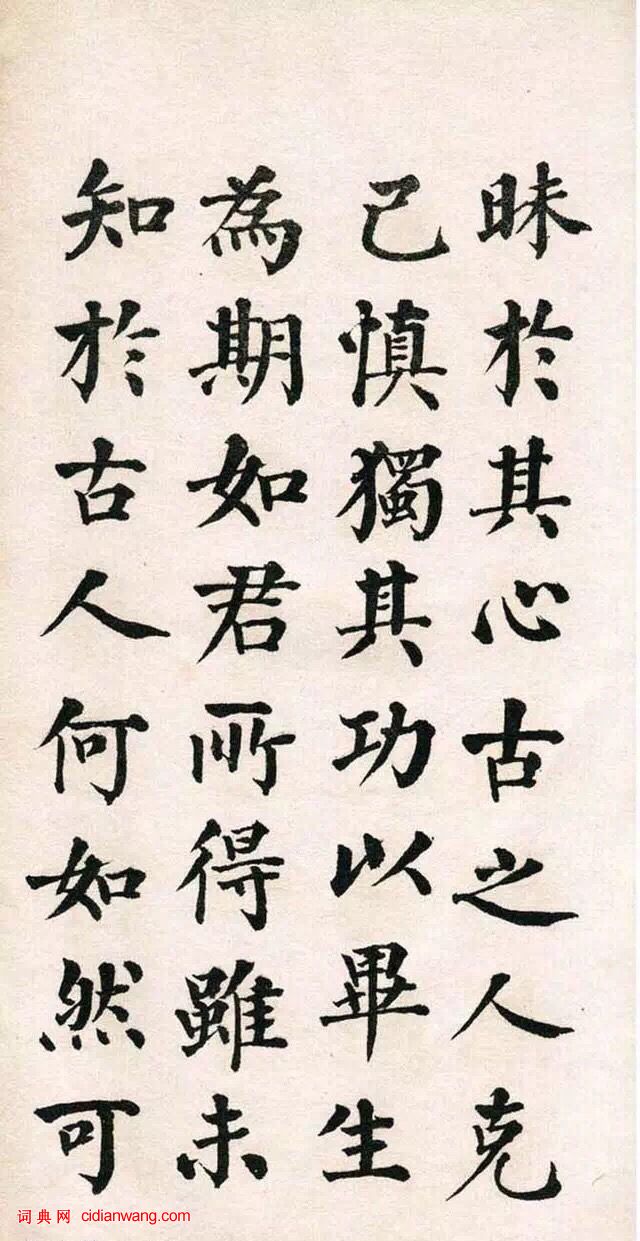 昧於其心古之人克
己慎獨其功以畢生
為期如君所得雖未
知於古人何如然可
词典网 cidianwang.com